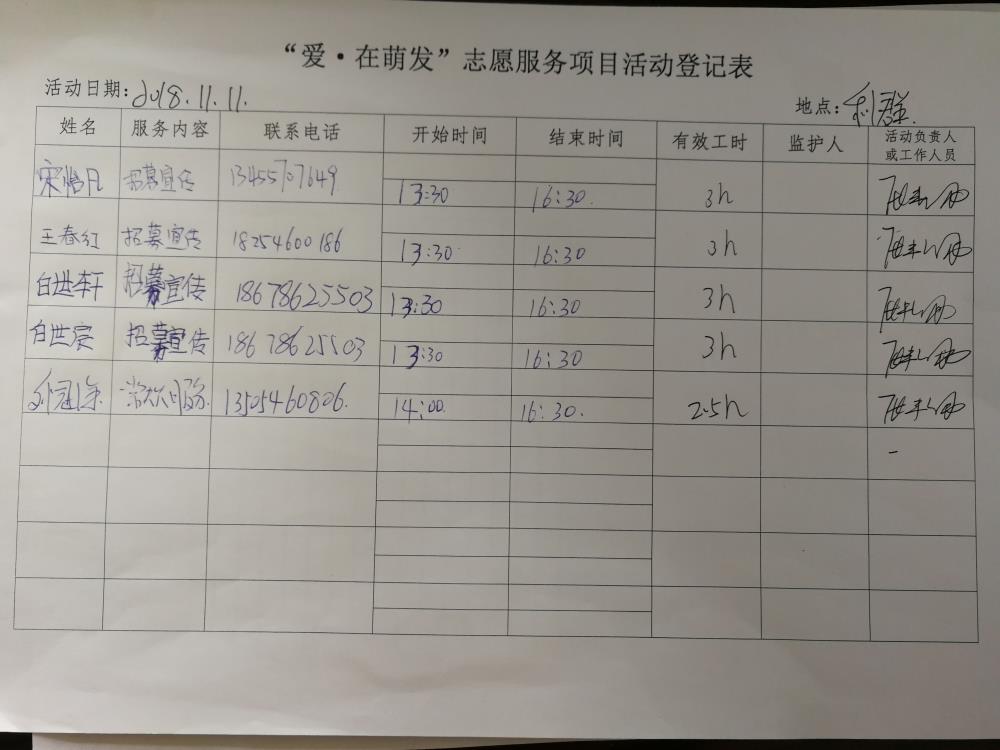 “爱·在萌发”志愿服务项目活动登记表
活动日期：2018.11.11. 地点：利群
姓名 服务内容 联系电话 开始时间 结束时间 有效工时 监护人 活动负责人或工作人员
宋怡凡 招募宣传 13455707649 13:30 16:30. 3h
王春红 招募宣传 18254600186 13:30 16:30 3h
白世轩 招募宣传 18678625503 13:30 16:30 3h
白世宸 招募宣传 18678625503 13:30 16:30 3h
13505460806. 14:00. 16:30. 2.5h